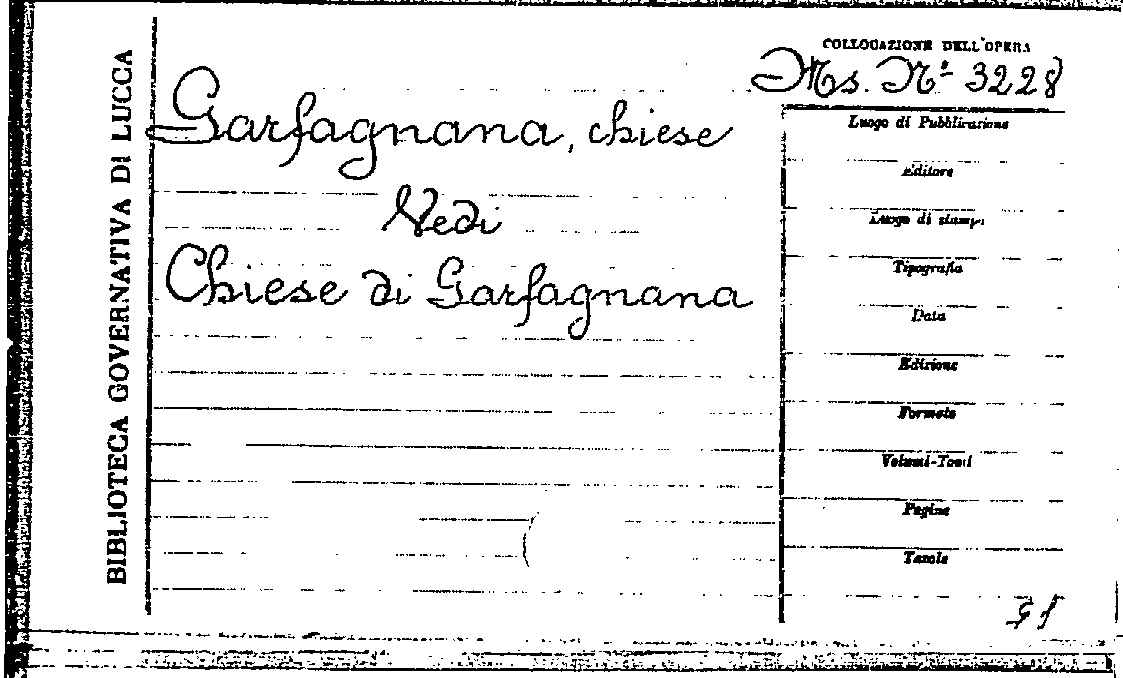 BIBLIOTECA GOVERNATIVA DI LUCCA
COLLOCAZIONE DELL'OPERA
Ms. Nº 3228
Garfagnana, chiese
Vedi
Chiese di Garfagnana
Luogo di Pubblicazione
Editore
Luogo di stampa
Tipografia
Data
Edizione
Formato
Volumi-Tomi
Pagine
Tavole